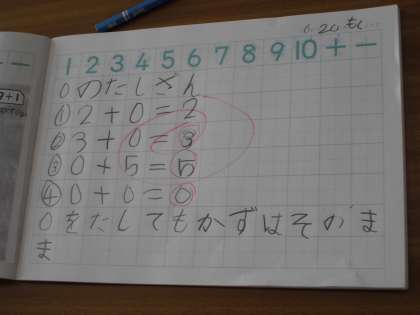 1 2 3 4 5 6 7 8 9 10 + −
0のたしざん
① 2 + 0 = 2
② 3 + 0 = 3
③ 0 + 5 = 5
④ 0 + 0 = 0
0をたしてもかずはそのま
ま